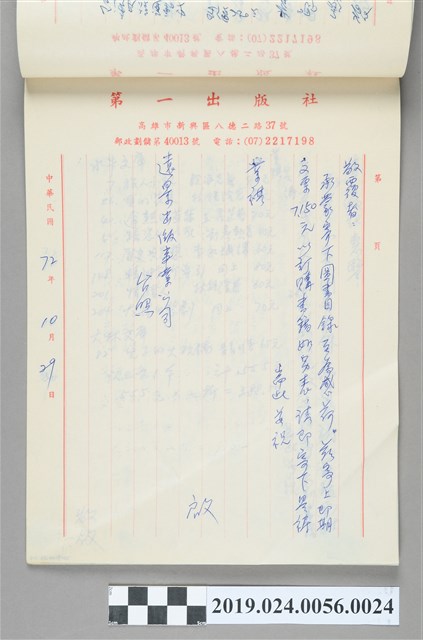 (07)2217198
第一出版社
高雄市新興區八德二路37號
郵政劃儲第40013號　電話：(07)2217198
第　頁
敬覆者：
承蒙寄下圖書目錄至為感荷。茲寄上即期
支票7,150元以訂購書籍如另表，請即寄下是禱
耑此 安祝
業祺
遠景出版事業公司
台照
啟
中華民國72年10月29日
2019.024.0056.0024